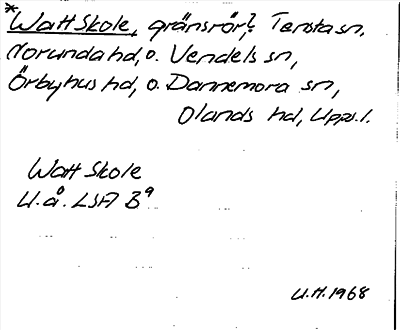 *Watt Skole, gränsrör?: Tensta sn,
Norunda hd, o. Vendels sn,
Örbyhus hd, o. Dannemora sn,
Olands hd, Uppl.
Watt Skole
U.å. LSA B9
U.H. 1968